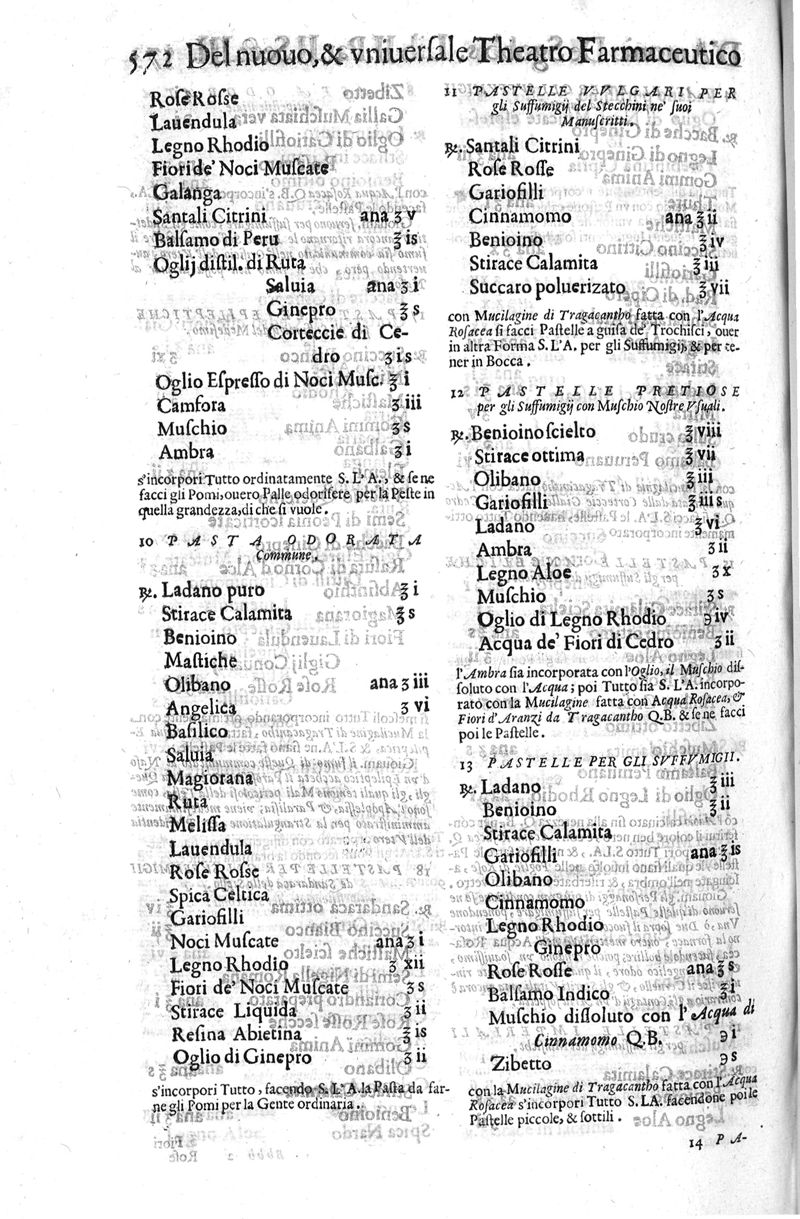 572 Del nuouo, & vniuerſale Theatro Farmaceutico
Roſe Roſſe
Lauendula
Legno Rhodio
Fiori de' Noci Muſcate
Galanga
Santali Citrini ana ʒ v
Balſamo di Peru ℥ is
Oglij diſtil. di Ruta
Saluia ana ʒ i
Ginepro ℥ s
Corteccie di Ce-
dro ʒ i s
Oglio Eſpreſſo di Noci Muſc. ℥ i
Camfora ʒ iii
Muſchio ʒ s
Ambra ʒ i
s'incorpori Tutto ordinatamente S. L'A., & ſe ne
facci gli Pomi, ouero Palle odorifere per la Peſte in
quella grandezza, di che ſi vuole.
10 PASTA ODORATA
Commune.
℞. Ladano puro ℥ i
Stirace Calamita ℥ s
Benioino
Maſtiche
Olibano ana ʒ iii
Angelica ʒ vi
Baſilico
Saluia
Magiorana
Ruta
Meliſſa
Lauendula
Roſe Roſſe
Spica Celtica
Gariofilli
Noci Muſcate ana ʒ i
Legno Rhodio ʒ xii
Fiori de' Noci Muſcate ʒ s
Stirace Liquida ʒ ii
Reſina Abietina ℥ is
Oglio di Ginepro ʒ ii
s'incorpori Tutto, facendo S. L'A. la Paſta da far-
ne gli Pomi per la Gente ordinaria.
11 PASTELLE VVLGARI PER
gli Suffumigij del Stecchini ne' ſuoi
Manuſcritti.
℞. Santali Citrini
Roſe Roſſe
Gariofilli
Cinnamomo ana ℥ ii
Benioino ℥ iv
Stirace Calamita ℥ iii
Succaro poluerizato ℥ vii
con Mucilagine di Tragacantho fatta con l'Acqua
Roſacea ſi facci Paſtelle a guiſa de' Trochiſci, ouer
in altra Forma S. L'A. per gli Suffumigij, & per te-
ner in Bocca.
12 PASTELLE PRETIOSE
per gli Suffumigij con Muſchio Noſtre Vſuali.
℞. Benioino ſcielto ℥ viii
Stirace ottima ℥ vii
Olibano ℥ iii
Gariofilli ℥ iii s
Ladano ℥ vi
Ambra ʒ ii
Legno Aloe ʒ x
Muſchio ʒ s
Oglio di Legno Rhodio ℈ iv
Acqua de' Fiori di Cedro ʒ ii
l'Ambra ſia incorporata con l'Oglio, il Muſchio diſ-
ſoluto con l'Acqua; poi Tutto ſia S. L'A. incorpo-
rato con la Mucilagine fatta con Acqua Roſacea, &
Fiori d'Aranzi da Tragacantho Q.B. & ſe ne facci
poi le Paſtelle.
13 PASTELLE PER GLI SVFFVMIGII.
℞. Ladano ℥ iii
Benioino ℥ ii
Stirace Calamita
Gariofilli ana ℥ is
Olibano
Cinnamomo
Legno Rhodio
Ginepro
Roſe Roſſe ana ℥ s
Balſamo Indico ℥ i
Muſchio diſſoluto con l'Acqua di
Cinnamomo Q.B. ℈ i
Zibetto ℈ s
con la Mucilagine di Tragacantho fatta con l'Acqua
Roſacea s'incorpori Tutto S. LA. facendone poi le
Paſtelle piccole, & ſottili.
14 PA-